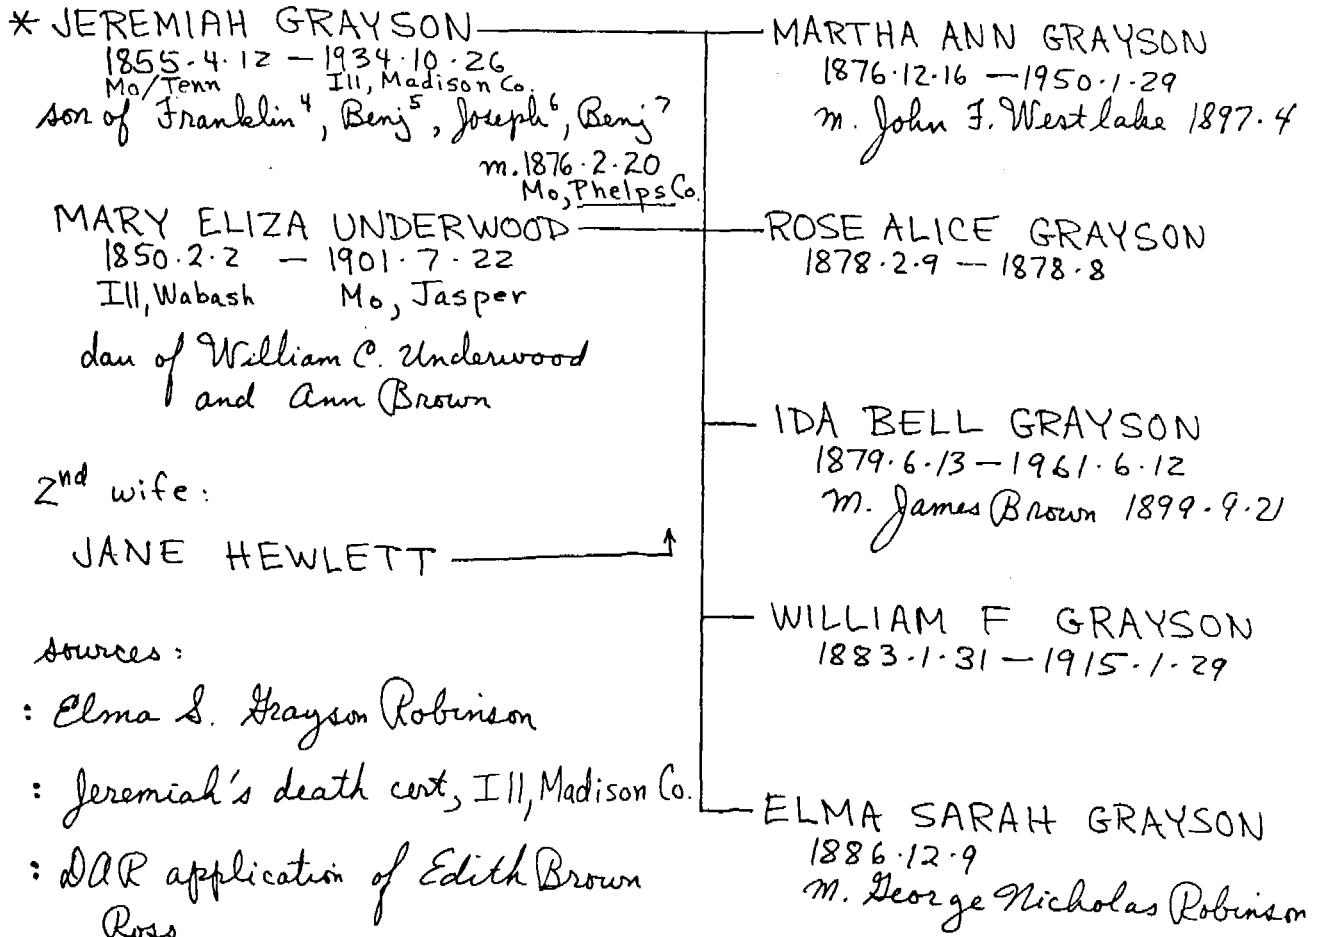 * JEREMIAH GRAYSON
1855.4.12 — 1934.10.26
Mo/Tenn Ill, Madison Co.
son of Franklin⁴, Benj⁵, Joseph⁶, Benj⁷
m. 1876.2.20
Mo, Phelps Co.
MARY ELIZA UNDERWOOD
1850.2.2 — 1901.7.22
Ill, Wabash Mo, Jasper
dau of William C. Underwood
and Ann Brown
2nd wife:
JANE HEWLETT
sources:
: Elma S. Grayson Robinson
: Jeremiah's death cert, Ill, Madison Co.
: DAR application of Edith Brown
Ross
MARTHA ANN GRAYSON
1876.12.16 — 1950.1.29
m. John F. Westlake 1897.4
ROSE ALICE GRAYSON
1878.2.9 — 1878.8
IDA BELL GRAYSON
1879.6.13 — 1961.6.12
m. James Brown 1899.9.21
WILLIAM F GRAYSON
1883.1.31 — 1915.1.29
ELMA SARAH GRAYSON
1886.12.9
m. George Nicholas Robinson